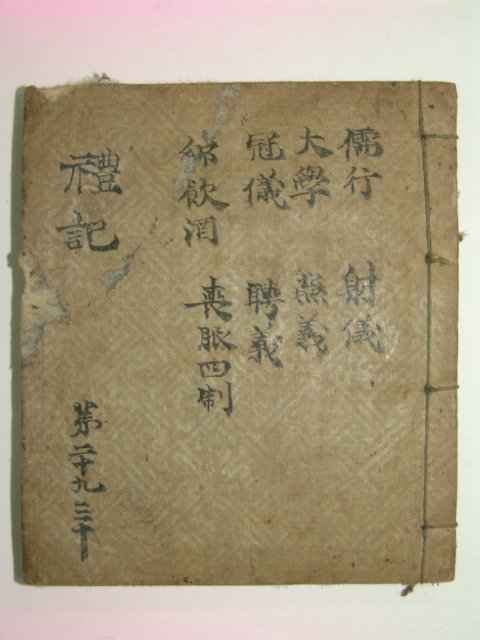 儒行 射儀
大學 燕義
冠儀 聘義
鄕飮酒 喪服四制
禮記 第二十九 三十